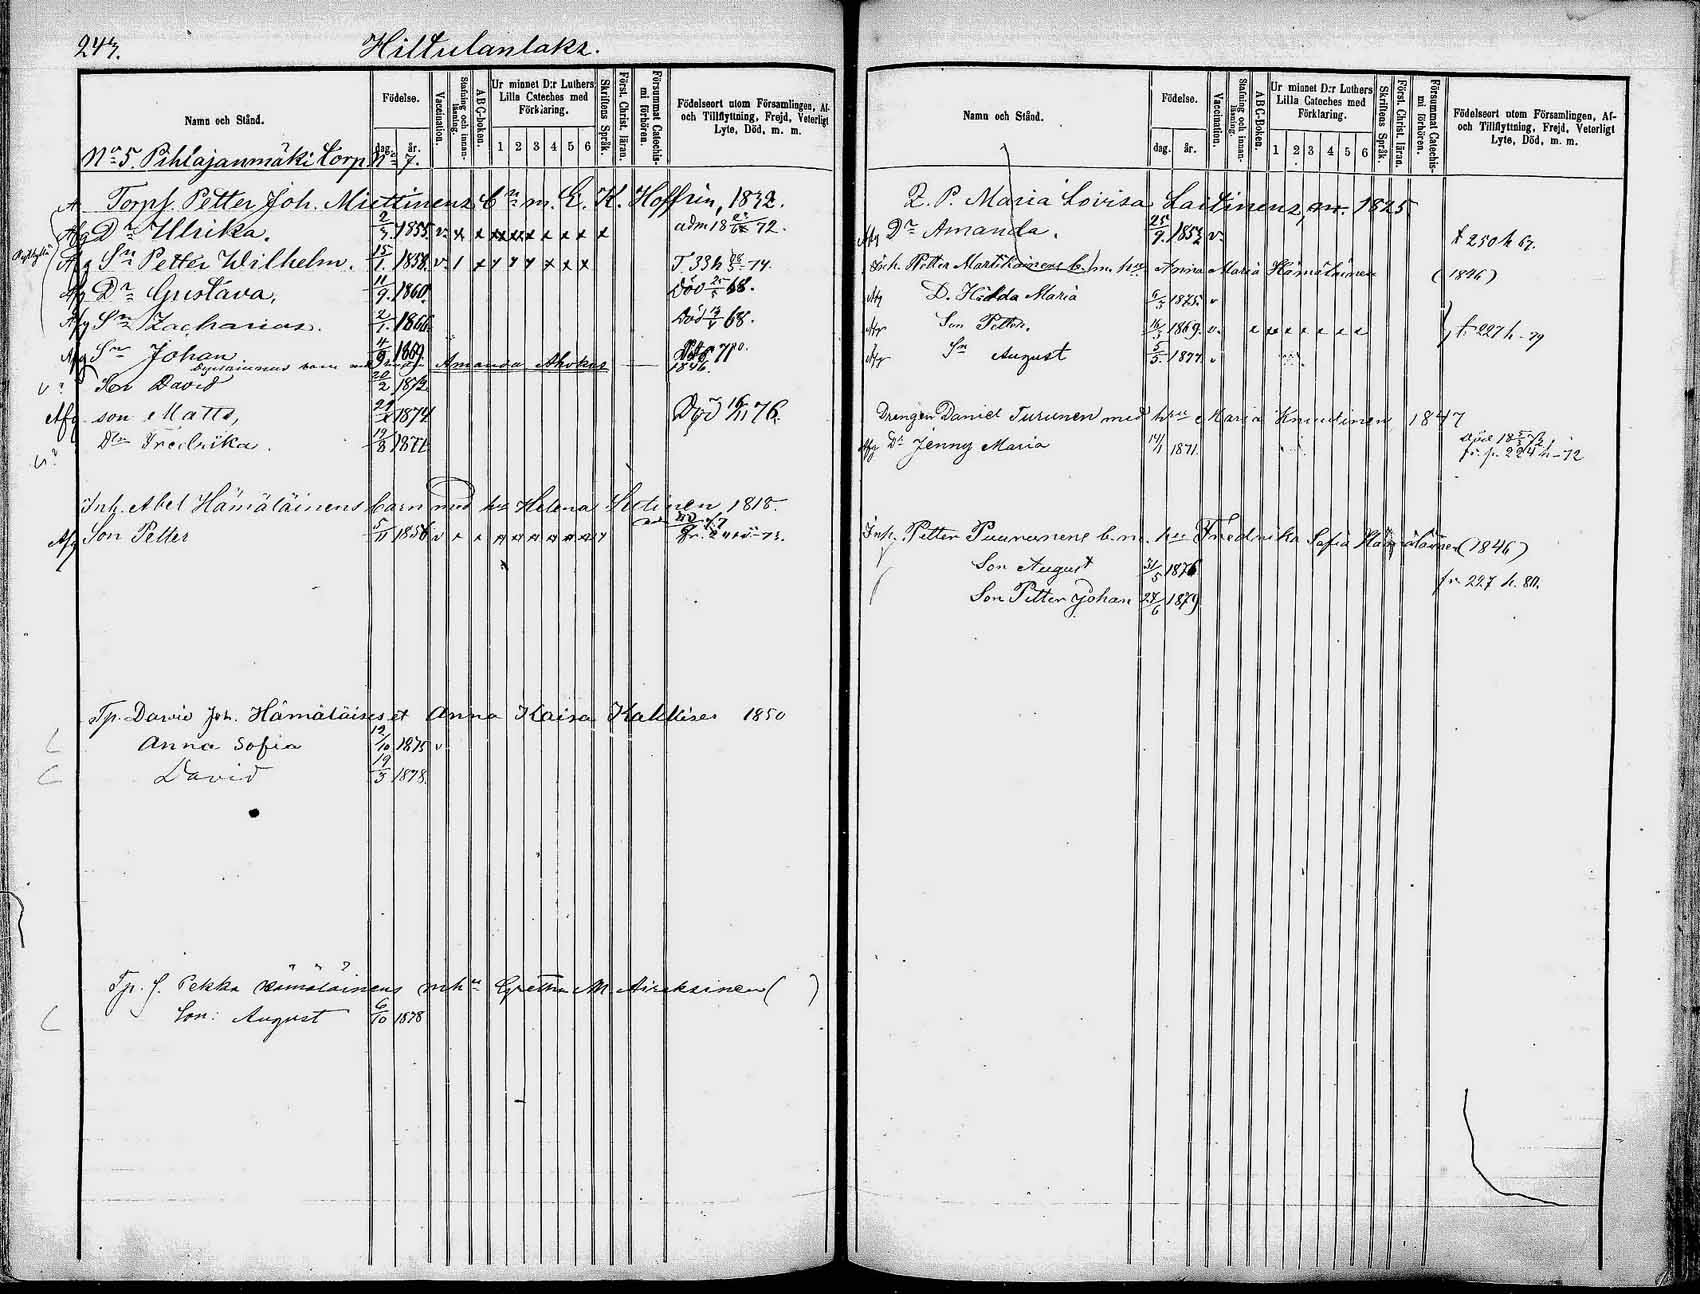 243.
Hiltulanlaks.
Namn och Stånd.
Födelse.
dag. år.
Vaccination.
Stafning och innanläsning.
A B C-boken.
Ur minnet D:r Luthers Lilla Cateches med Förklaring.
1 2 3 4 5 6
Skriftens Språk.
Först. Christ. läran.
Försummat Catechismi förhören.
Födelseort utom Församlingen, Af- och Tillflyttning, Frejd, Veterligt Lyte, Död, m. m.
No 5. Pihlajanmäki Torp No 7.
Torpf. Petter Joh. Miettinens bn m. E. K. Hoffrén, 1832.
Afg Dr Ulrika. 2/3 1855. v. x x x x x x x x x adm 18 72.
Afg Sn Petter Wilhelm. 15/1 1858. v. 1 T 33 h 74.
Afg Dr Gustava, 11/9 1860 Död 68.
Afg Sn Zacharias. 2/1 1866 Död 68.
Afg Sn Johan 4/9 1869
Amanda Ahokas 1846.
David 20/2 1872
Afg son Matts, 1874 Död 16/11 76.
Dtr Fredrika. 19/8 1877
Inh. Abel Hämäläinens barn med h. Helena 1818.
Afg Son Petter 5/11 1856 v x x
Tp. David Joh. Hämäläises et Anna Kaisa Kakkises 1850
Anna Sofia 12/10 1875 v
David 19/3 1878.
Tp. J. Pekka Hämäläinens m hu Gretha M. Airaksinen ( )
Son: August 6/10 1878
Namn och Stånd.
Födelse.
dag. år.
Vaccination.
Stafning och innanläsning.
ABC-Boken.
Ur minnet D:r Luthers Lilla Cateches med Förklaring.
1 2 3 4 5 6
Skriftens Språk.
Först. Christ. läran.
Försummat Catechismi förhören.
Födelseort utom Församlingen, Af- och Tillflyttning, Frejd, Veterligt Lyte, Död, m. m.
Maria Lovisa Laitinens, 1825
Afg Dr Amanda. 25/9 1852 v. t 250 h 67.
Inh. Petter Martikainens b. m. hu Anna Maria Hämäläinen (1846)
Afg D. Hilda Maria 6/3 1875 v
Afg Son Petter. 16/3 1869. v. fr 227 h - 79
Afg Sn August 5/5 1877 v
Drengen Daniel Turunen med hru Maria Knuutinen 1847
Afg Dr Jenny Maria 14/1 1871. fr. p. 224 h - 72
Inh. Petter Puurunens b. m. hu Fredrika Sofia Hämäläinen (1846)
Son August 31/5 1876 fr 227 h. 80.
Son Petter Johan 27/6 1879